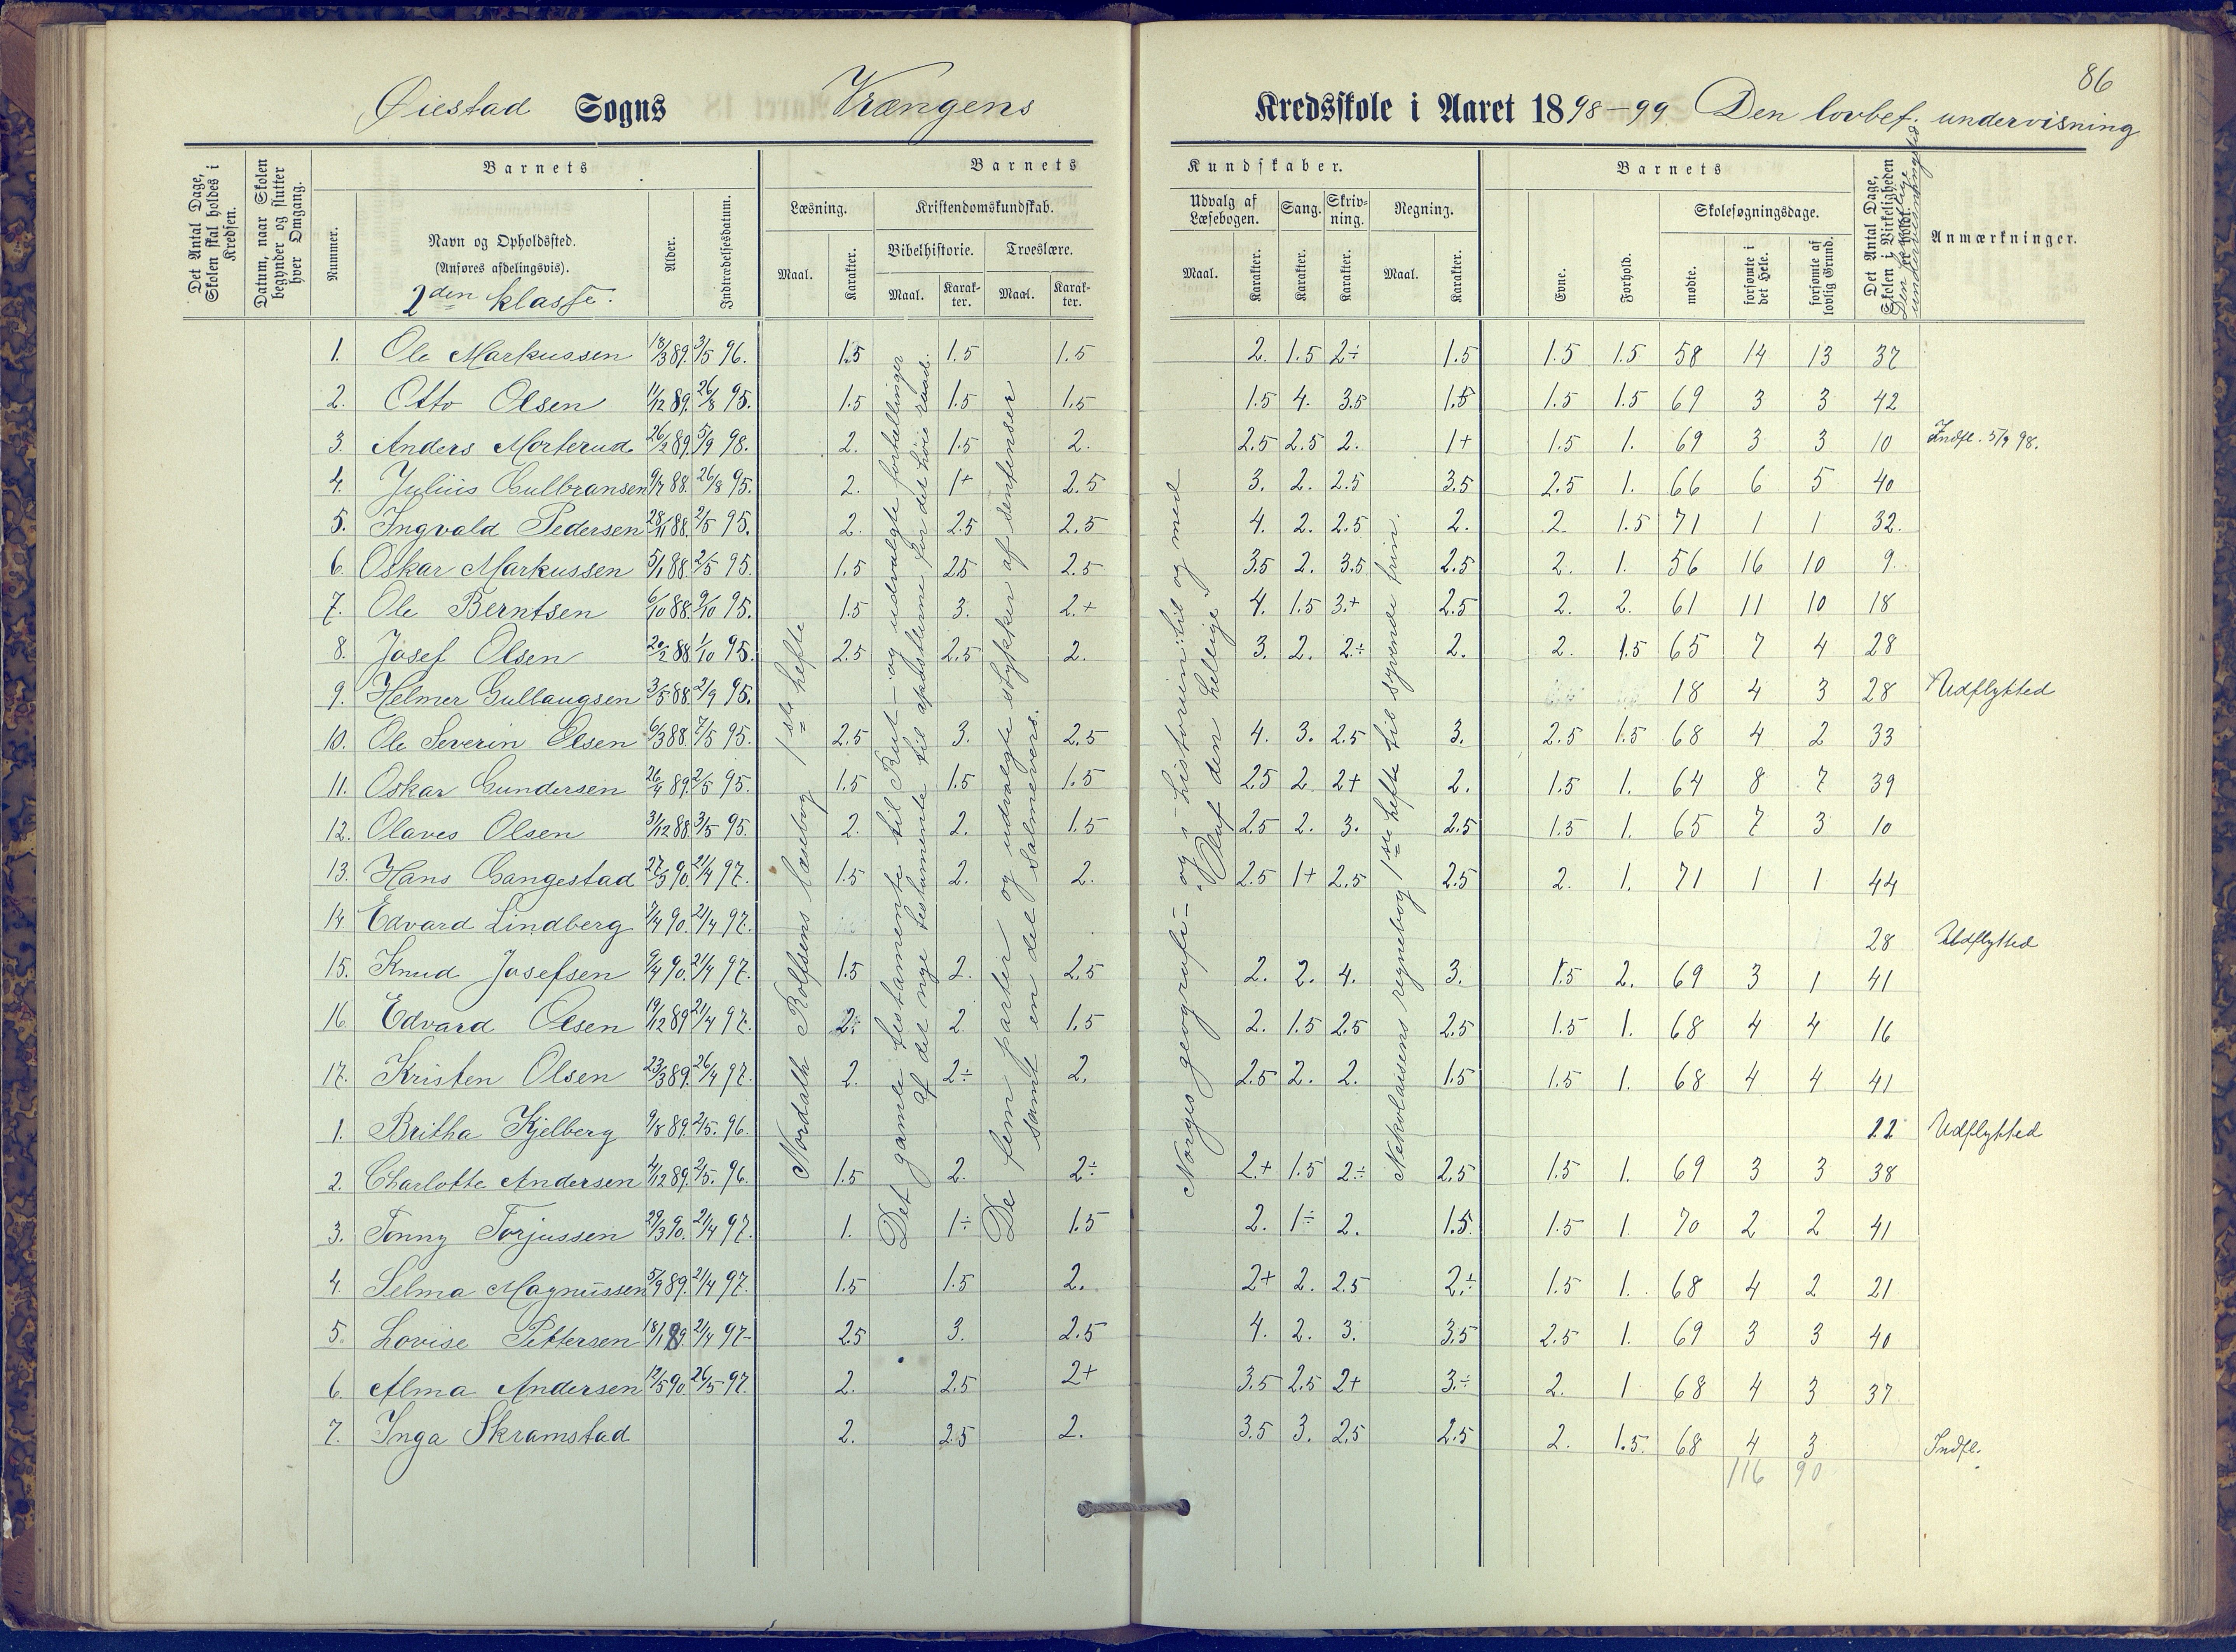 86
Øiestad Sogns Vrængens Kredsskole i Aaret 1898-99 Den lovbef. undervisning
Det Antal Dage, Skolen skal holdes i Kredsen.
Datum, naar Skolen begynder og slutter hver Omgang.
Nummer.
Barnets
Navn og Opholdssted.
(Anføres afdelingsvis).
2den klasse.
Alder.
Indtrædelsesdatum.
Barnets Kundskaber.
Læsning.
Maal.
Karakter.
Kristendomskundskab.
Bibelhistorie.
Maal.
Karakter.
Troeslære.
Maal.
Karakter.
Udvalg af Læsebogen.
Maal.
Karakter.
Sang.
Karakter.
Skrivning.
Karakter.
Regning.
Maal.
Karakter.
Barnets
Evne.
Forhold.
Skolesøgningsdage.
mødte.
forsømte i det Hele.
forsømte af lovlig Grund.
Det Antal Dage, Skolen i Virkeligheden er holdt.
Den frivillige undervisningstid
Anmærkninger.
Nordahl Rolfsens læsebog 1ste hefte
Det gamle testamente til Rut – og udvalgte fortællinger af det nye testamente til apostlerne for det høie raad.
De fem parter og udvalgte stykker af sentenser samt en del salmevers.
Norges geografi – og – historien til og med Oluf den hellige
Nikolaisens regnebog 1ste hefte til syvende trin.
1. Ole Markussen 18/3 89. 3/5 96. 1.5 1.5 1.5 2. 1.5 2÷ 1.5 1.5 1.5 58 14 13 37
2. Otto Olsen 11/12 89. 26/8 95. 1.5 1.5 1.5 1.5 4. 3.5 1.5 1.5 1.5 69 3 3 42
3. Anders Morterud 26/2 89. 5/9 98. 2. 1.5 2. 2.5 2.5 2. 1+ 1.5 1. 69 3 3 10 Indfl. 5/9 98.
4. Julius Gulbransen 9/7 88. 26/8 95. 2. 1+ 2.5 3. 2. 2.5 3.5 2.5 1. 66 6 5 40
5. Ingvald Pedersen 28/11 88. 2/5 95. 2. 2.5 2.5 4. 2. 2.5 2. 2. 1.5 71 1 1 32.
6. Oskar Markussen 5/1 88. 2/5 95. 1.5 2.5 2.5 3.5 2. 3.5 2.5 2. 1. 56 16 10 9.
7. Ole Berntsen 6/10 88. 9/10 95. 1.5 3. 2.+ 4. 1.5 3.+ 2.5 2. 2. 61 11 10 18
8. Josef Olsen 20/2 88. 1/10 95. 2.5 2.5 2. 3. 2. 2.÷ 2. 2. 1.5 65 7 4 28
9. Helmer Gullaugsen 3/5 88. 2/9 95. 18 4 3 28 Udflytted
10. Ole Severin Olsen 6/3 88. 7/5 95. 2.5 3. 2.5 4. 3. 2.5 3. 2.5 1.5 68 4 2 33
11. Oskar Gundersen 26/4 89. 2/5 95. 1.5 1.5 1.5 2.5 2. 2+ 2. 1.5 1. 64 8 7 39
12. Olaves Olsen 31/12 88. 3/5 95. 2. 2. 1.5 2.5 2. 3. 2.5 1.5 1. 65 7 3 10
13. Hans Gangestad 27/3 90. 21/4 97. 1.5 2. 2. 2.5 1+ 2.5 2.5 2. 1. 71 1 1 44
14. Edvard Lindberg 7/4 90. 21/4 97. 28 Udflytted
15. Knud Josefsen 9/4 90. 21/4 97. 1.5 2. 2.5 2. 2. 4. 3. 1.5 2. 69 3 1 41
16. Edvard Olsen 19/12 89 21/4 97. 2÷ 2. 1.5 2. 1.5 2.5 2.5 1.5 1. 68 4 4 16
17. Kristen Olsen 23/3 89. 26/4 97. 2. 2÷ 2. 2.5 2. 2. 1.5 1.5 1. 68 4 4 41
1. Britha Kjelberg 9/8 89. 2/5. 96. 22 Udflytted
2. Charlotte Andersen 4/12 89. 2/5. 96. 1.5 2. 2÷ 2.+ 1.5 2÷ 2.5 1.5 1. 69 3 3 38
3. Tonny Torjussen 29/3 90. 21/4 97. 1. 1÷ 1.5 2. 1÷ 2. 1.5 1.5 1. 70 2 2 41
4. Selma Magnussen 5/9 89. 21/4 97. 1.5 1.5 2. 2+ 2. 2.5 2.÷ 1.5 1. 68 4 2 21
5. Lovise Pettersen 18/1 89. 21/4 97- 2.5 3. 2.5 4. 2. 3. 3.5 2.5 1. 69 3 3 40
6. Alma Andersen 12/5 90 26/5 97. 2. 2.5 2+ 3.5 2.5 2+ 3.÷ 2. 1 68 4 3 37
7. Inga Skramstad 2. 2.5 2. 3.5 3. 2.5 2.5 2. 1.5. 68 4 3 Indfl.
116 90